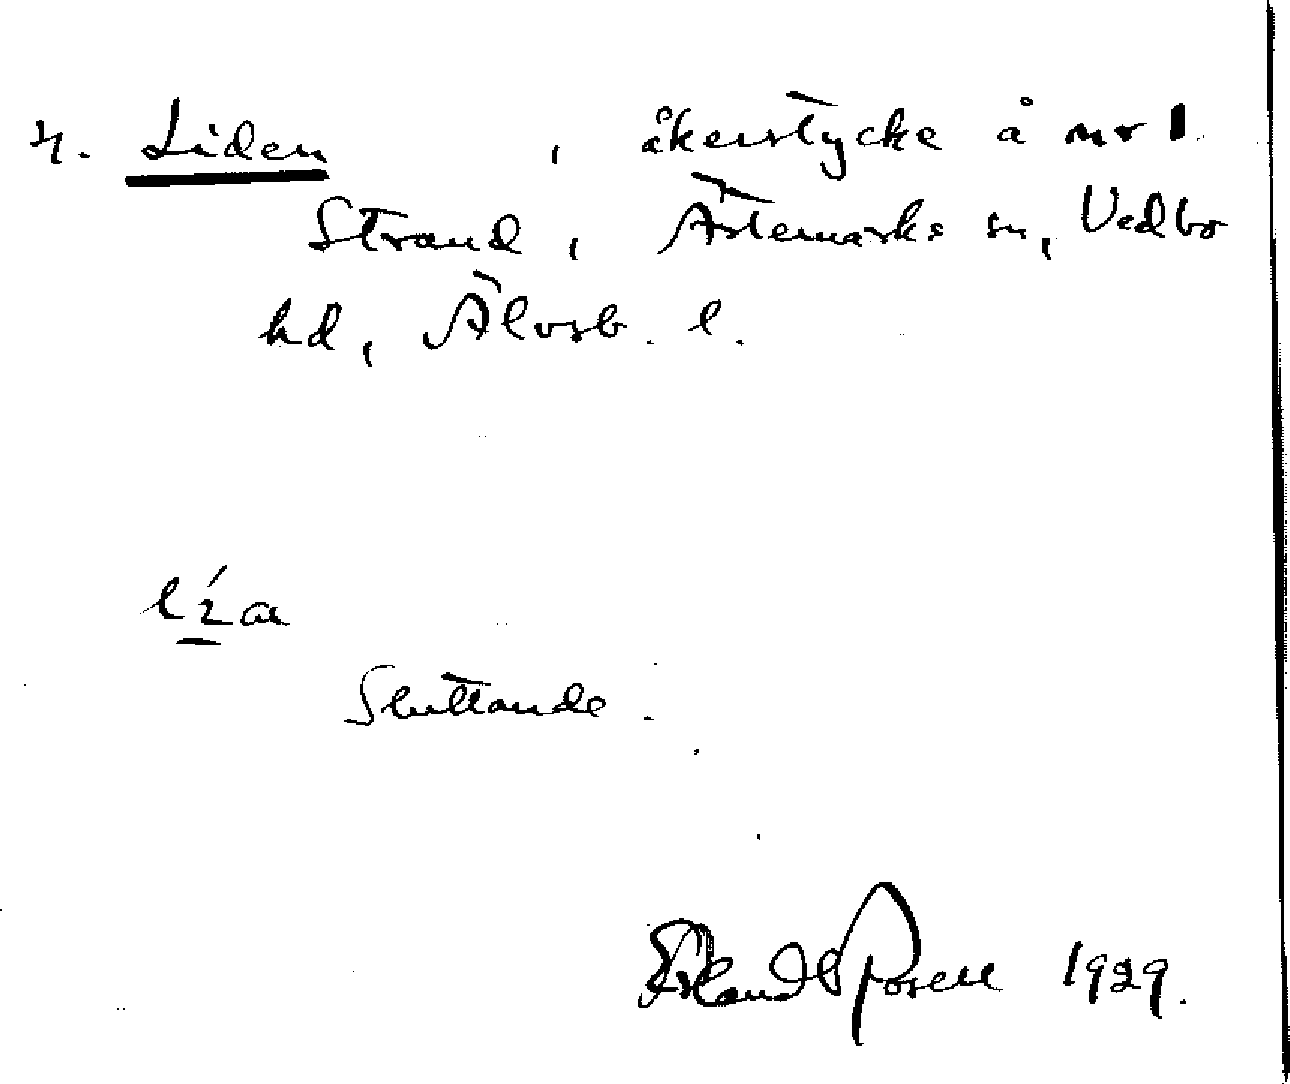 4. Liden, åkerstycke å nr 1
Strand, Ärtemarks sn, Vedbo
hd, Älvsb. l.
Sluttande.
Erland Rosell 1929.